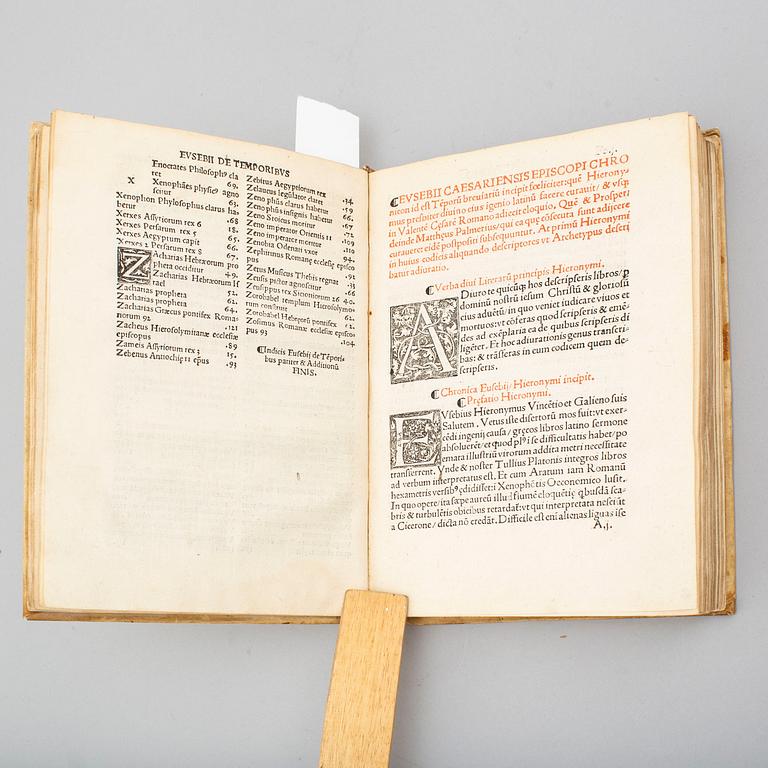 EVSEBII DE TEMPORIBVS
Enocrates Philosophꝰ cla
ret 69.
X Xenophães physicꝰ agno
scitur 63.
Xenophon Philosophus clarus ha-
betur .68
Xerxes Assyriorum rex 6 18.
Xerxes Persarum rex 5 65.
Xerxes Aegyptum capit 66.
Xerxes 2 Persarum rex 8 67.
Zacharias Hebræorum pro
pheta occiditur .49.
Zacharias Hebræorum
rael
Zacharias propheta 52.
Zacharias propheta 62.
Zacharias Græcus pontifex Roma-
norum 92 .121
Zacheus Hierosolymitanæ ecclesiæ
episcopus .89
Zameis Assyriorum rex 3 15.
Zebenus Antiochiȩ 11 epũs .93
Zebirus Aegyptiorum rex .34.
Zelaucus legũlator claret .59
Zeno phũs clarus habetur 66.
Zeno phũs insignis habetur .67
Zeno Stoicus moritur .72
Zeno imperator Orientis 11 .109
Zeno imperator moritur .110
Zenobia Odenati vxor 94.
Zephirinus Romanȩ ecclesiȩ episco
pus
Zetus Musicus Thebis regnat .33
Zeusis pictor agnoscitur .66
Zeusippus rex Sicioniorum 26 40.
Zorobabel templum Hierosolymo-
rum construit 62.
Zorobabel Hebrȩorũ pontifex 62.
Zosimus Romanæ ecclesiæ episco-
pus 93 .104
¶Indicis Eusebij de Tẽpori-
bus pariter & Additionũ
FINIS.
¶EVSEBII CAESARIENSIS EPISCOPI CHRO
nicon id est Tẽporũ breuiariũ incipit fœliciter: quẽ Hierony-
mus presbiter diuino eius igenio latinũ facere curauit/ & vsqꝫ
in Valentẽ Cȩsarẽ Romano adiecit eloquio. Quẽ & Prosper/
deinde Matthȩus Palmerius/ qui ea que cõsecuta sunt adijcere
curauere: eidẽ postpositi subsequuntur. At primũ Hieronymi
in huius codicis aliquando descriptores vt Archetypus deseri
batur adiuratio.
¶Verba diui Literarũ principis Hieronymi.
ADiuro te quicũqꝫ hos descripseris libros/ ꝑ
dominũ nostrũ iesum Christũ & gloriosũ
eius aduẽtũ/ in quo veniet iudicare viuos et
mortuos: vt cõferas quod scripseris & emẽ-
des ad exẽplaria ea de quibus scripseris di
ligẽter. Et hoc adiurationis genus transcri-
bas: & trãsferas in eum codicem quem de-
scripseris.
¶Chronica Eusebij/ Hieronymi incipit.
¶Prȩfatio Hieronymi.
EVsebius Hieronymus Vincẽtio et Galieno suis
Salutem. Vetus iste disertorũ mos fuit: vt exer-
cẽdi ingenij causa/ grȩcos libros latino sermone
absoluerẽt/ et quod plꝰ i se difficultatis habet/ po
emata illustriũ virorum addita metri necessitate
transferrent. Vnde & noster Tullius Platonis integros libros
ad verbum interpretatus est. Et cum Aratum iam Romanũ
hexametris versibꝰ ȩdidisset: i Xenophõtis Oeconomico lusit.
In quo opere/ ita sæpe aureũ illud flumẽ eloquẽtiȩ qbusdã sca-
bris & turbulẽtis obicibus retardat: vt qui interpretata nesciũt
a Cicerone/ dicta nõ credãt. Difficile est enĩ alienas liguas ise
A.j.